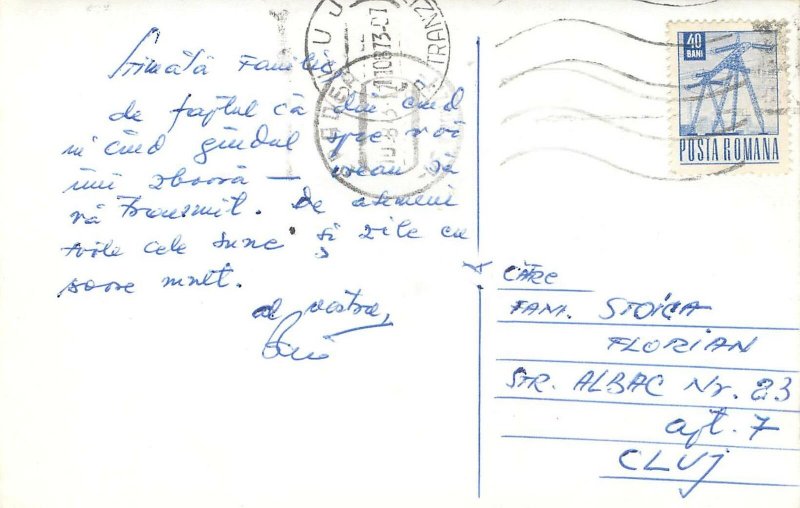 Stimată Familie
de faptul că din cînd
în cînd gîndul spre voi
îmi zboară – vreau să
vă transmit. De asemeni
toate cele bune și zile cu
soare mult.
al vostru,
40
BANI
POSTA ROMANA
CĂTRE
FAM. STOICA
FLORIAN
STR. ALBAC Nr. 23
apt. 7
CLUJ